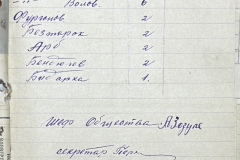 Волов. 6
Фургонов 2
Безтарок 2
Арб 2
Бендюгов 2
Бидарка 1.
Шеф Общества А Зодуля
секретар